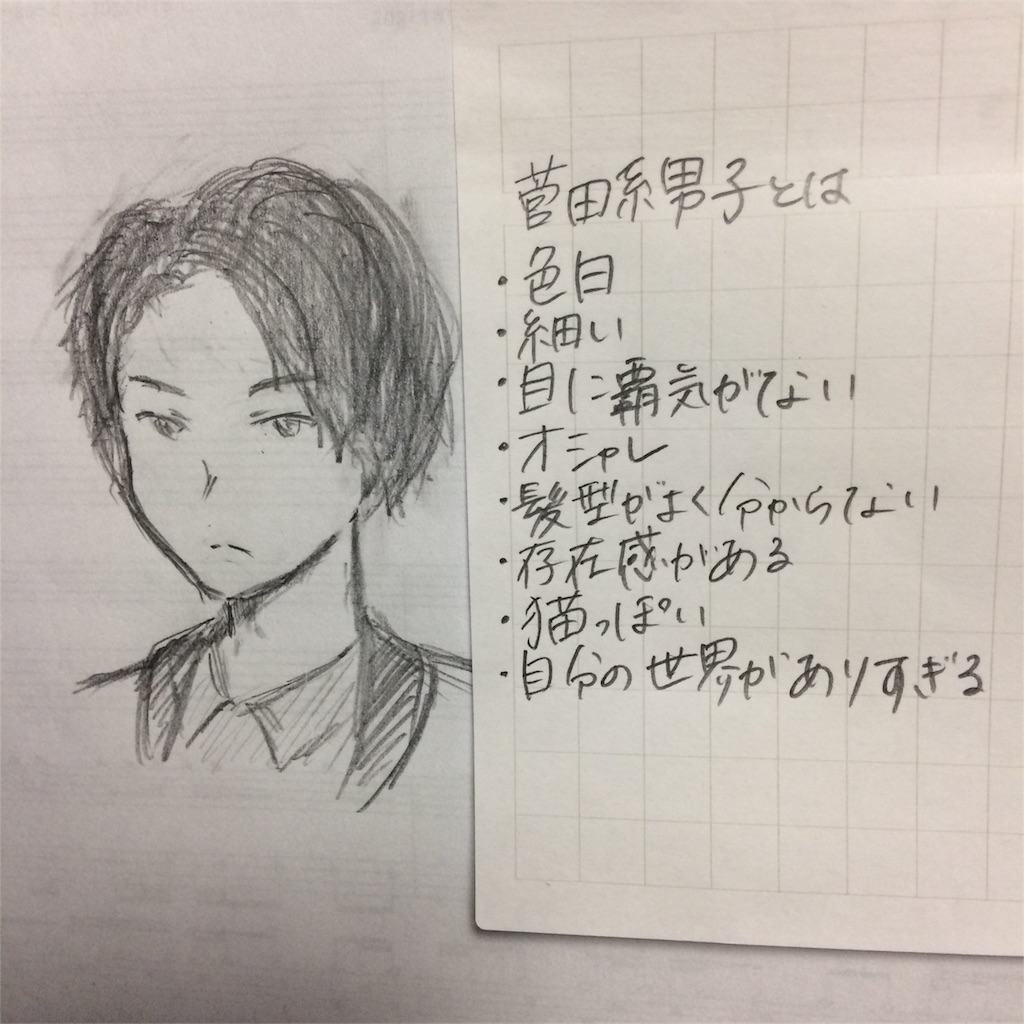 菅田系男子とは
・色白
・細い
・目に覇気がない
・オシャレ
・髪型がよく分からない
・存在感がある
・猫っぽい
・自分の世界がありすぎる